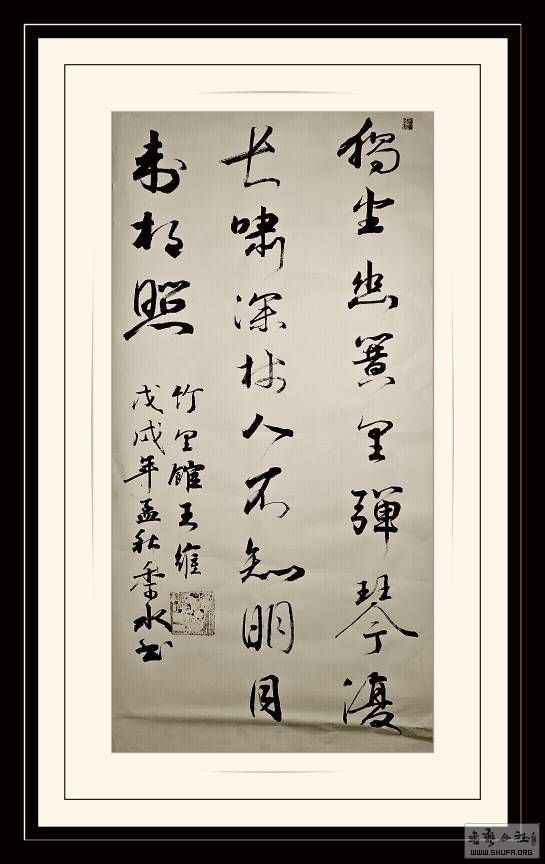 獨坐幽篁里彈琴復
长嘯深林人不知明月
来相照
竹里館王維
戊戌年孟秋水书
書藝公社
WWW.SHUFA.ORG